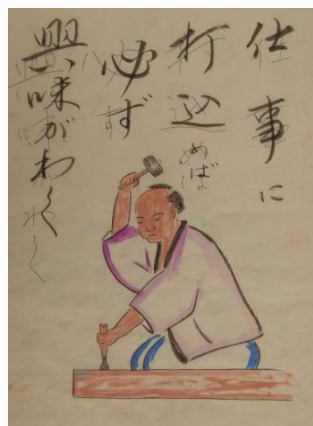 仕事に
打込めば
必ず
興味がわく